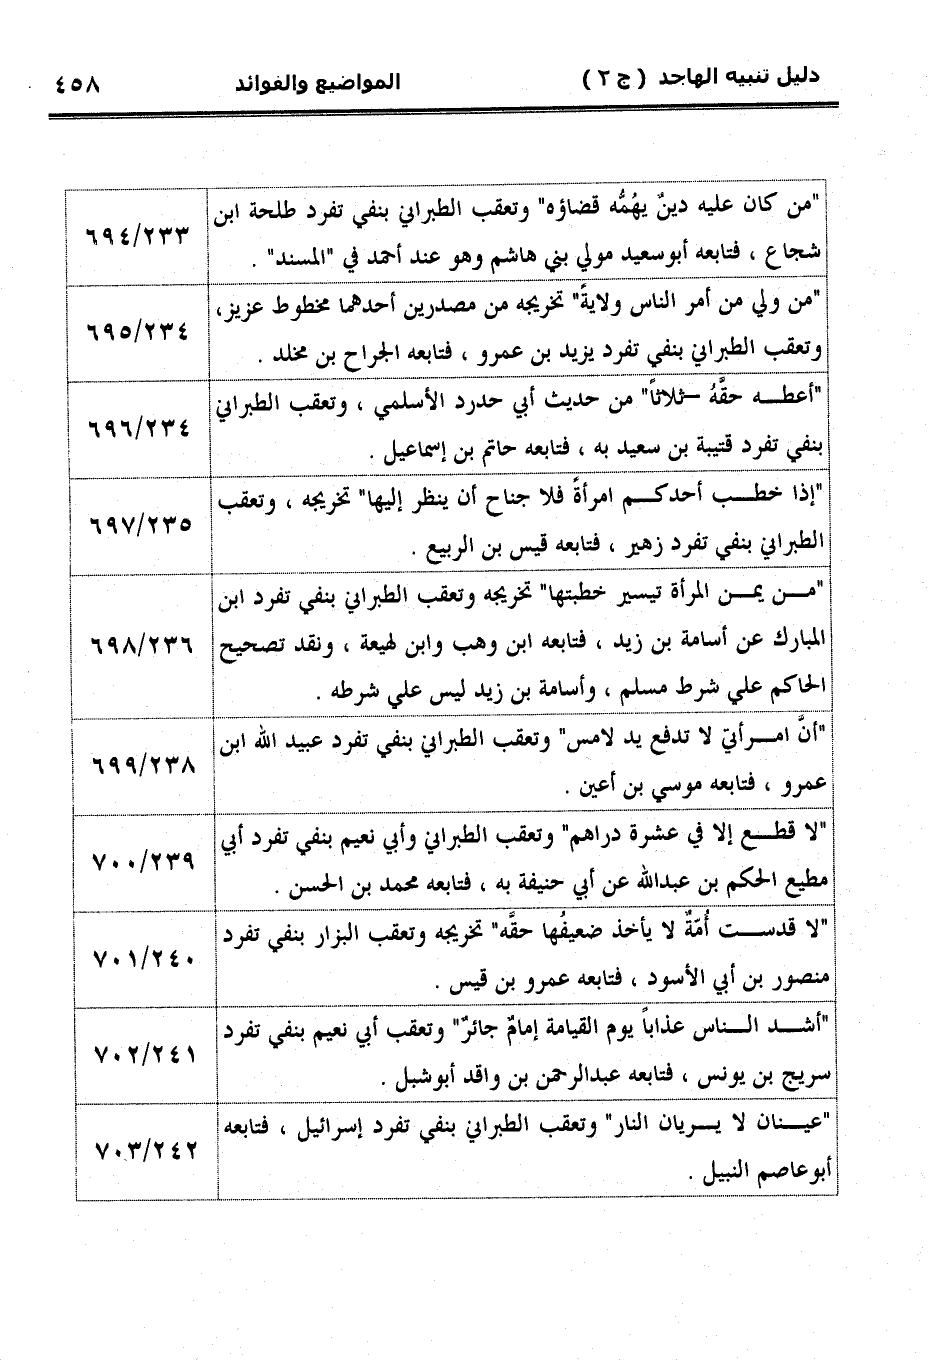 دليل تنبيه الهاجد ( ج ٢ ) المواضيع والفوائد ٤٥٨
"من كان عليه دينٌ يهُمُّه قضاؤه" وتعقب الطبراني بنفي تفرد طلحة ابن
شجاع ، فتابعه أبوسعيد مولي بني هاشم وهو عند أحمد في "المسند" .
٦٩٤/٢٣٣
"من ولي من أمر الناس ولايةً" تخريجه من مصدرين أحدهما مخطوط عزيز،
وتعقب الطبراني بنفي تفرد يزيد بن عمرو ، فتابعه الجراح بن مخلد .
٦٩٥/٢٣٤
"أعطه حقَّهُ –ثلاثاً" من حديث أبي حدرد الأسلمي ، وتعقب الطبراني
بنفي تفرد قتيبة بن سعيد به ، فتابعه حاتم بن إسماعيل .
٦٩٦/٢٣٤
"إذا خطب أحدكم امرأةً فلا جناح أن ينظر إليها" تخريجه ، وتعقب
الطبراني بنفي تفرد زهير ، فتابعه قيس بن الربيع .
٦٩٧/٢٣٥
"من يمن المرأة تيسير خطبتها" تخريجه وتعقب الطبراني بنفي تفرد ابن
المبارك عن أسامة بن زيد ، فتابعه ابن وهب وابن لهيعة ، ونقد تصحيح
الحاكم علي شرط مسلم ، وأسامة بن زيد ليس علي شرطه .
٦٩٨/٢٣٦
"أنَّ امرأتي لا تدفع يد لامس" وتعقب الطبراني بنفي تفرد عبيد الله ابن
عمرو ، فتابعه موسي بن أعين .
٦٩٩/٢٣٨
"لا قطع إلا في عشرة دراهم" وتعقب الطبراني وأبي نعيم بنفي تفرد أبي
مطيع الحكم بن عبدالله عن أبي حنيفة به ، فتابعه محمد بن الحسن .
٧٠٠/٢٣٩
"لا قدست أُمّةٌ لا يأخذ ضعيفُها حقَّه" تخريجه وتعقب البزار بنفي تفرد
منصور بن أبي الأسود ، فتابعه عمرو بن قيس .
٧٠١/٢٤٠
"أشد الناس عذاباً يوم القيامة إمامٌ جائرٌ" وتعقب أبي نعيم بنفي تفرد
سريج بن يونس ، فتابعه عبدالرحمن بن واقد أبوشبل .
٧٠٢/٢٤١
"عينان لا يريان النار" وتعقب الطبراني بنفي تفرد إسرائيل ، فتابعه
أبوعاصم النبيل .
٧٠٣/٢٤٢